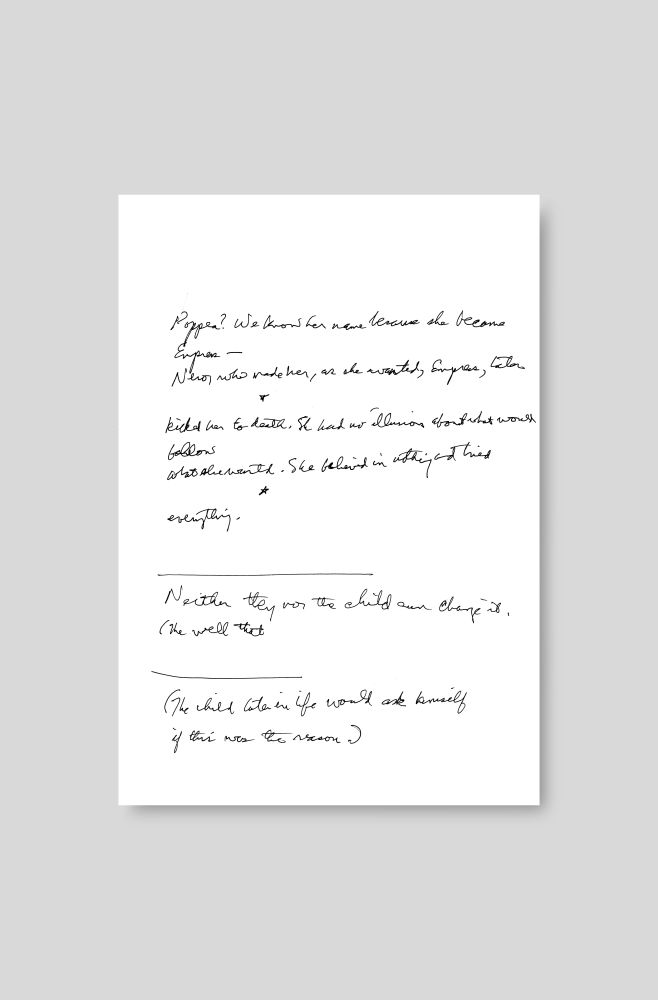 Poppea? We know her name because she became
Empress —
Nero, who made her, as she wanted, Empress, later
kicked her to death. She had no illusions about what would
follow
what she wanted. She believed in nothing and tried
everything.
Neither they nor the child can change it.
(The well that
(The child later in life would ask himself
if this was the reason.)